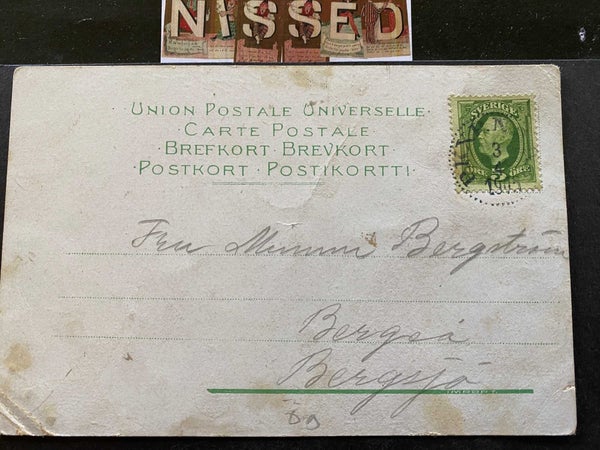 NISSED
UNION POSTALE UNIVERSELLE·
· CARTE POSTALE ·
· BREFKORT · BREVKORT ·
· POSTKORT · POSTIKORTTI ·
SVERIGE
3
Fru Bergström
Bergeå
Bergsjö